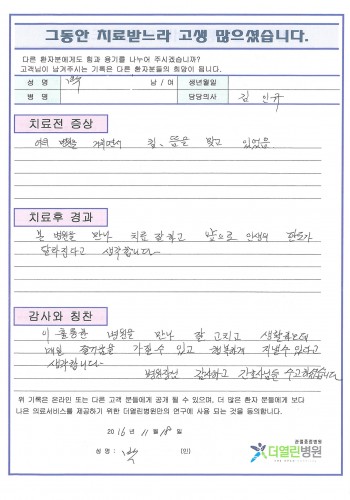 그동안 치료받느라 고생 많으셨습니다.
다른 환자분에게도 힘과 용기를 나누어 주시겠습니까?
고객님이 남겨주시는 기록은 다른 환자분들의 희망이 됩니다.
성 명 남 / 여 생년월일
병 명 담당의사 김 인규
치료전 증상
여러 병원을 거치면서 침, 뜸을 맞고 있었음
치료후 경과
본 병원을 만나 치료 잘하고 앞으로 인생의 판도가
달라진다고 생각합니다~
감사와 칭찬
이 훌륭한 병원을 만나 잘 고치고 생활하는데
매일 즐거움을 가질 수 있고 행복하게 지낼수 있다고
생각합니다~
병원장님 감사하고 간호사님들 수고하셨습니다
위 기록은 온라인 또는 다른 고객 분들에게 공개 될 수 있으며, 더 많은 환자 분들에게 보다
나은 의료서비스를 제공하기 위한 더열린병원만의 연구에 사용 되는 것을 동의합니다.
2016년 11월 18일
성 명 : (인)
관절중점병원
더열린병원